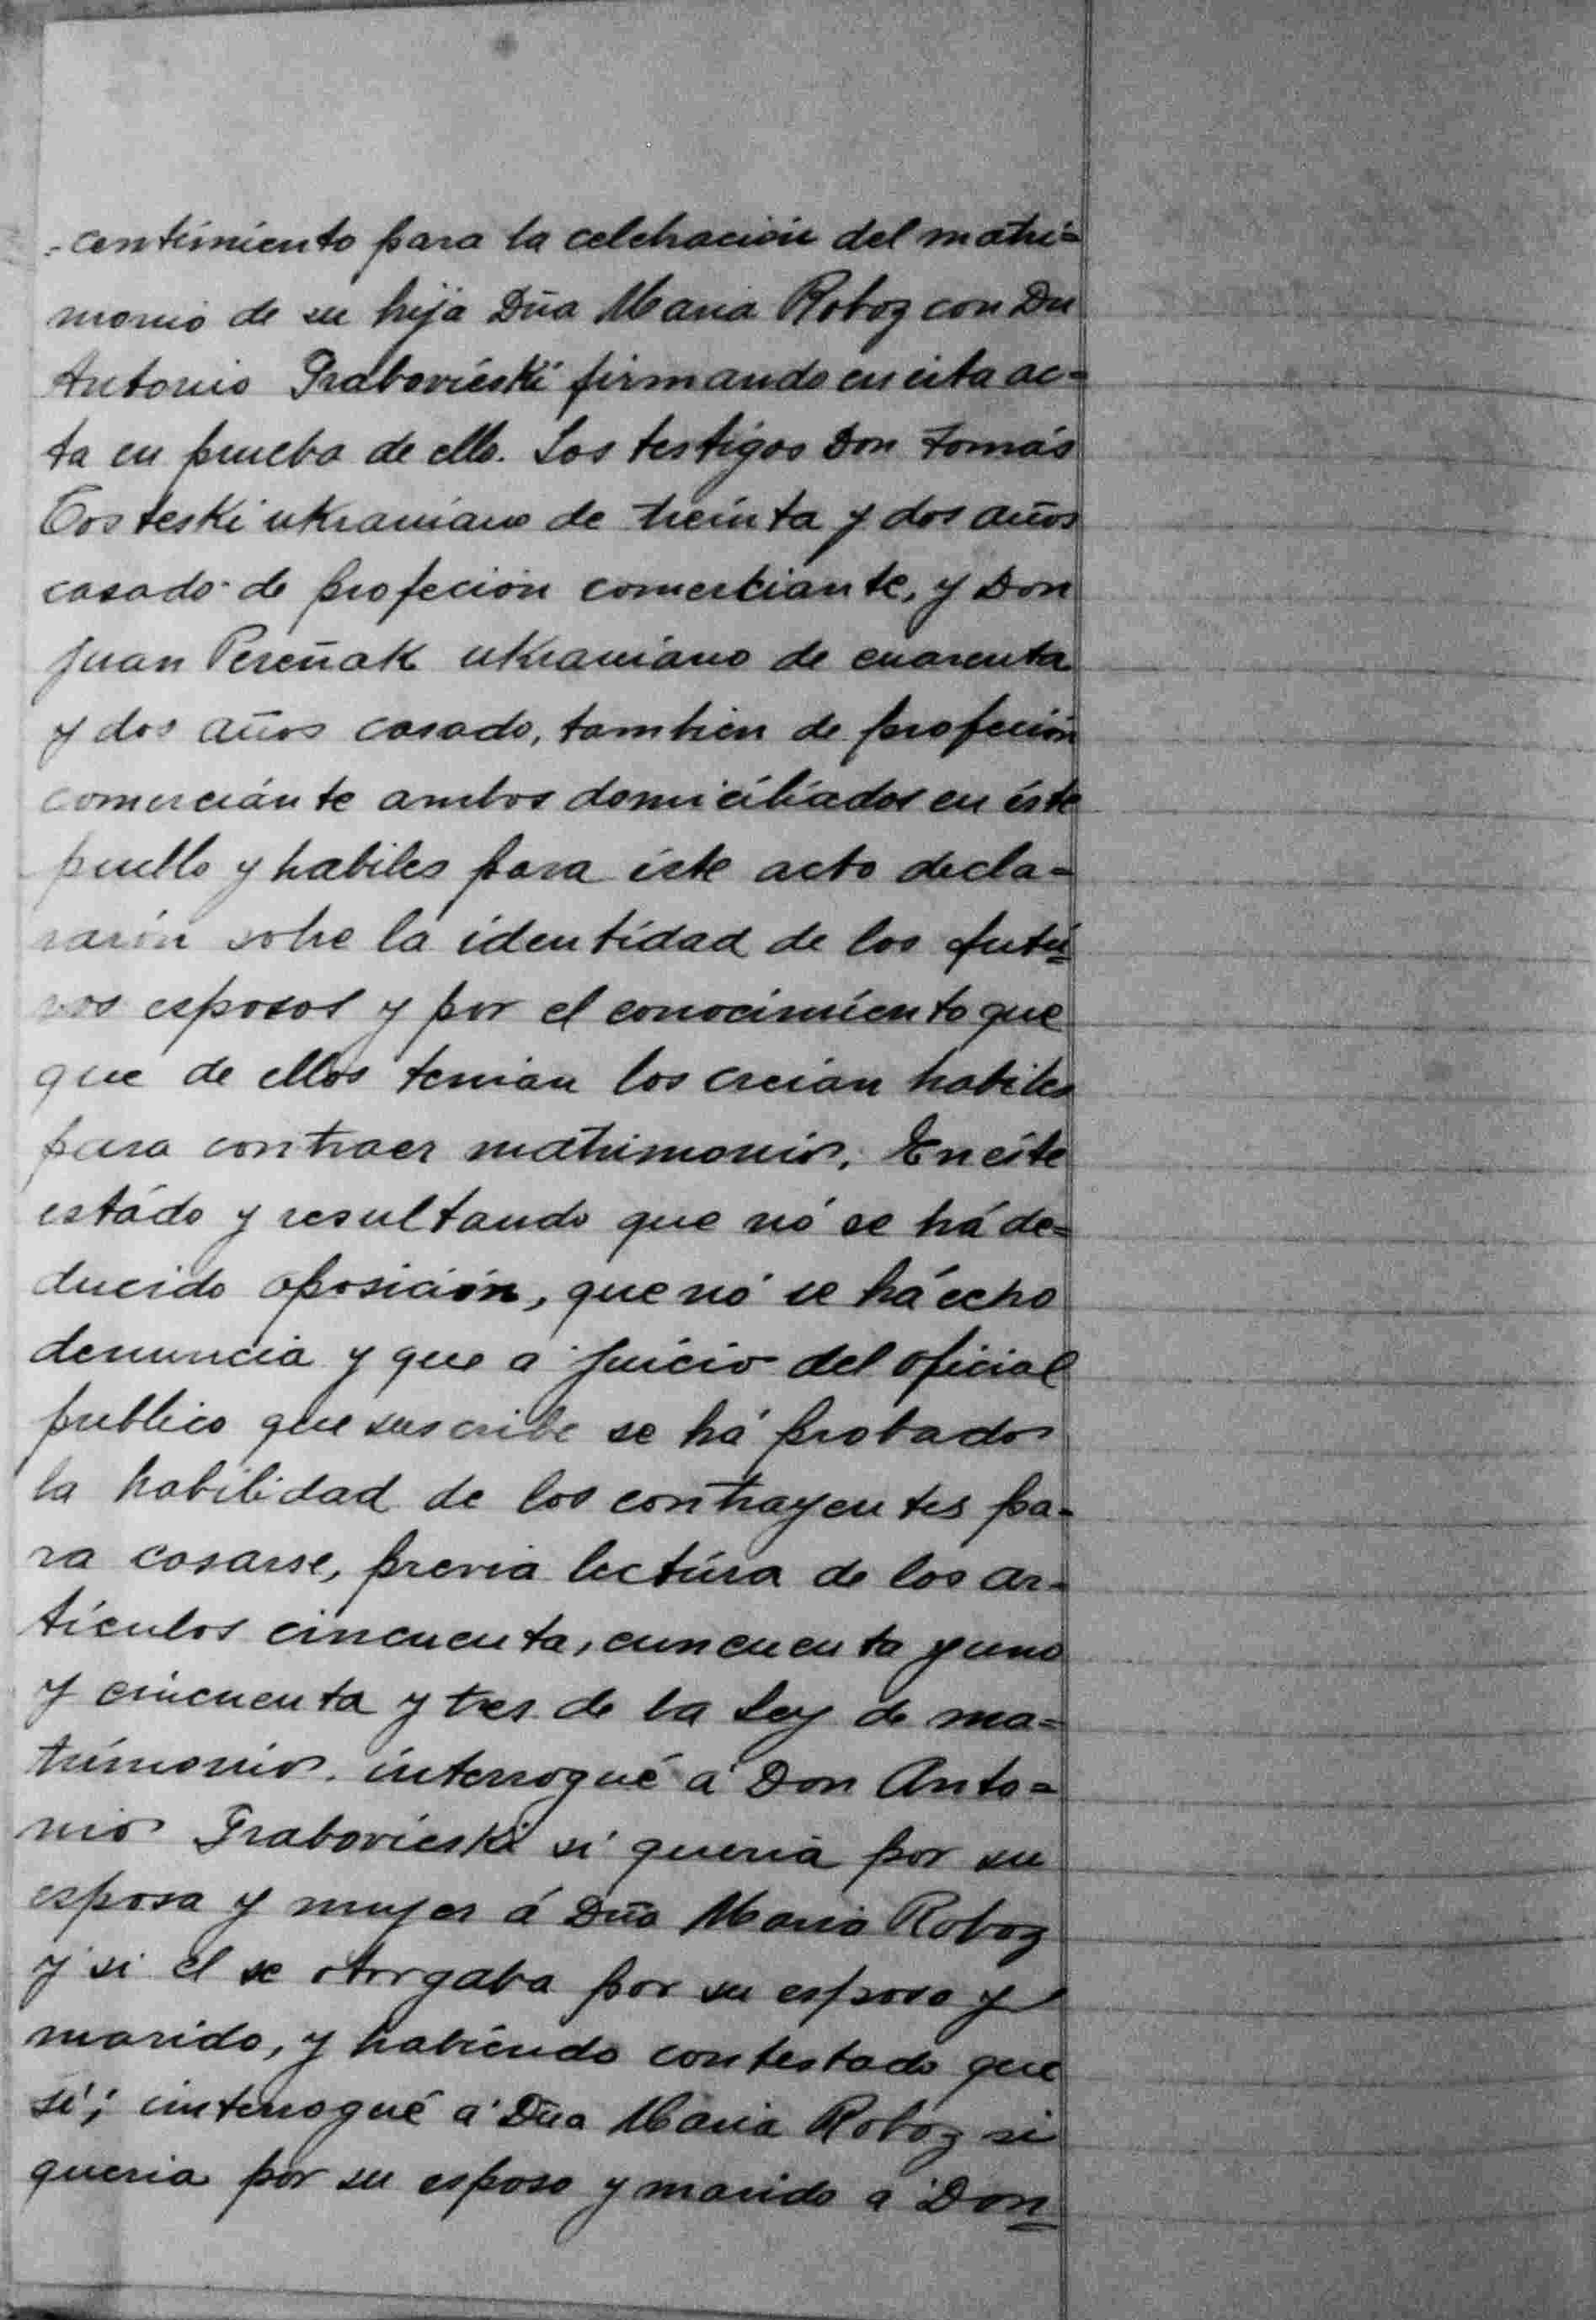 =centimiento para la celebración del matri=
monio de su hija Dña Maria Roboz con Dn
Antonio Grabovieski firmando en esta ac=
ta en prueba de ello. Los testigos Don Tomás
Costeski ukraniano de treinta y dos años
casado de profeción comerciante, y Don
Juan Pereñak ukraniano de cuarenta
y dos años casado, tambien de profeción
comerciánte ambos domiciliados en éste
pueblo y habiles para éste acto decla=
rarón sobre la identidad de los futú=
ros esposos y por el conocimiento que
que de ellos tenian los creian habiles
para contraer matrimonio. En éste
estádo y resultando que nó se há de=
ducido oposición, que nó se há écho
denuncia y que a juicio del oficial
publico que suscribe se há probado
la habilidad de los contrayentes pa=
ra casarse, previa lectúra de los ar=
tículos cincuenta, cuncuenta y uno
y cincuenta y tres de la Ley de ma=
trimonio. interrogué á Don Anto=
nio Grabovieski si queria por su
esposa y mujer á Dña Maria Roboz
y si el se otorgaba por su esposo y
marido, y habiendo contestado que
sí; interrogué a Dña Maria Roboz si
queria por su esposo y marido a Don=